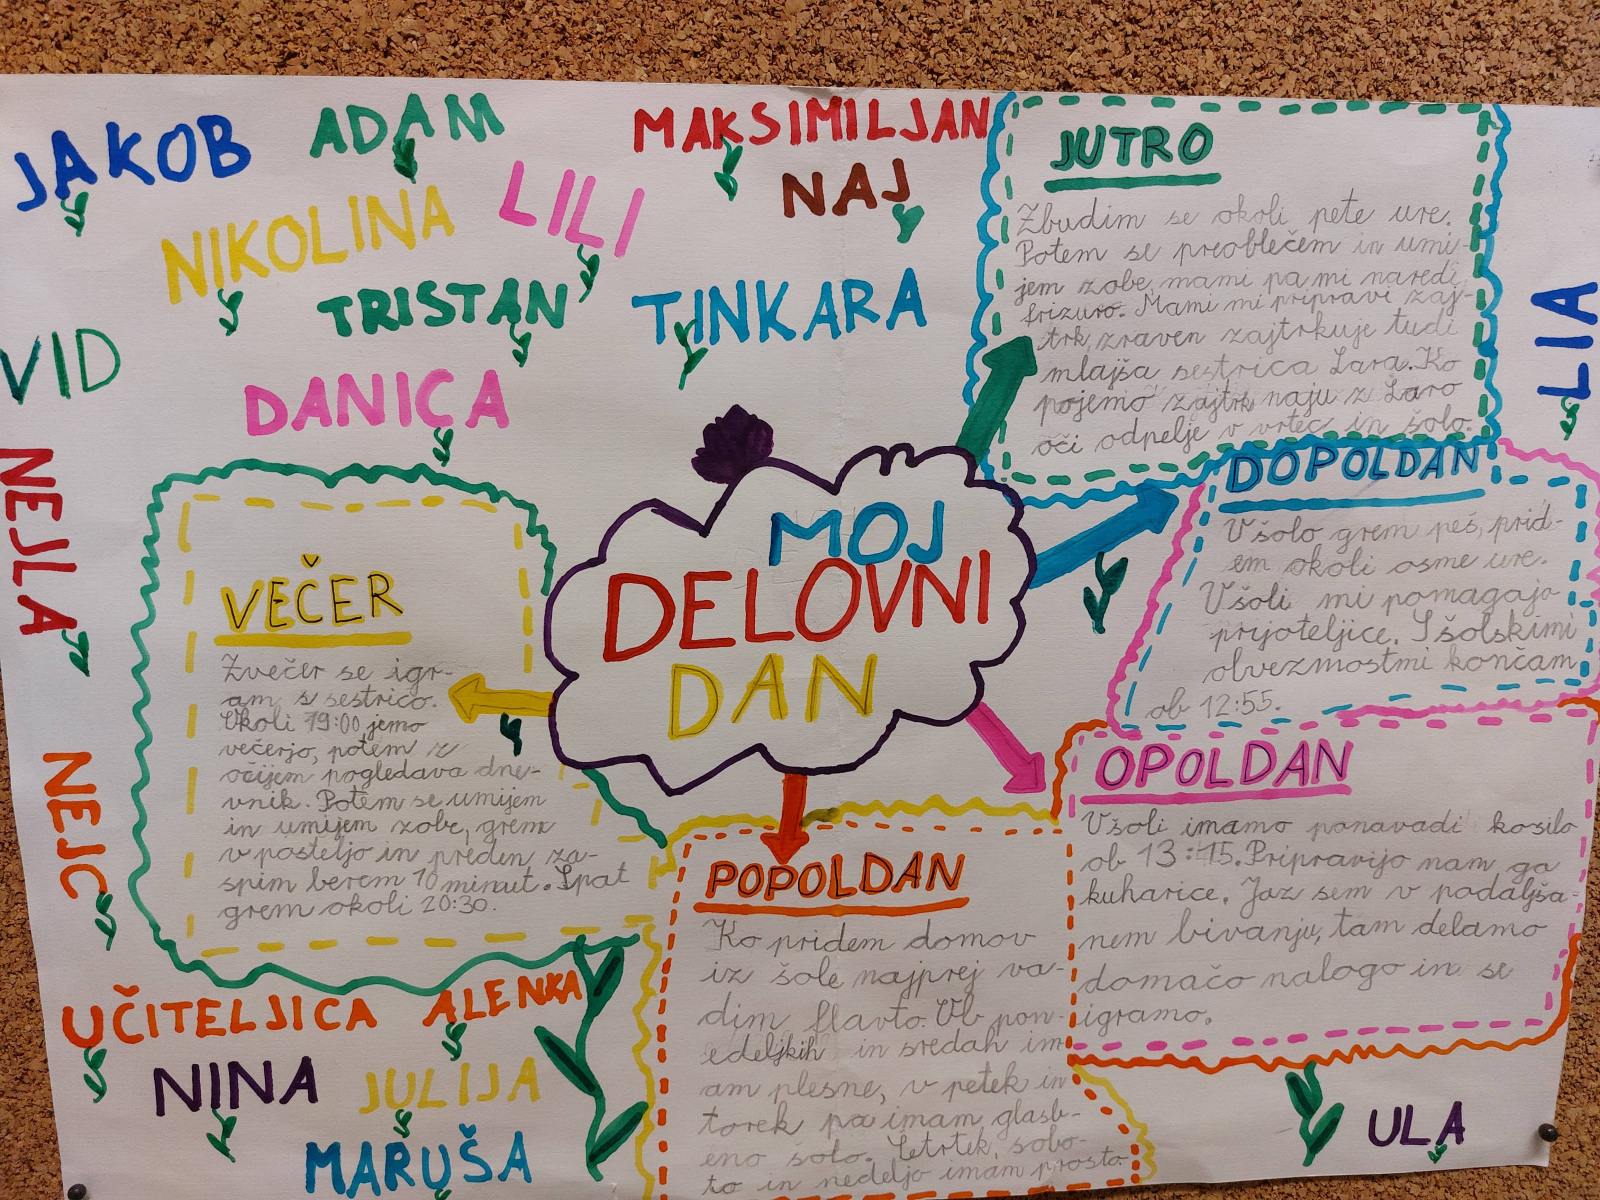 JAKOB
ADAM
MAKSIMILJAN
NAJ
NIKOLINA
LILI
TRISTAN
TINKARA
VID
DANICA
NEJLA
NEJC
LIA
MOJ
DELOVNI
DAN
JUTRO
Zbudim se okoli pete ure.
Potem se preoblečem in umi-
jem zobe, mami pa mi naredi
frizuro. Mami mi pripravi zaj-
trk, zraven zajtrkuje tudi
mlajša sestrica Lara. Ko
pojemo zajtrk naju z Laro
oči odpelje v vrtec in šolo.
DOPOLDAN
V šolo grem peš, prid-
em okoli osme ure.
V šoli mi pomagajo
prijoteljice. S šolskimi
obveznostmi končam
ob 12:55.
OPOLDAN
V šoli imamo ponavadi kosilo
ob 13:15. Pripravijo nam ga
kuharice. Jaz sem v podaljša-
nem bivanju, tam delamo
domačo nalogo in se
igramo.
POPOLDAN
Ko pridem domov
iz šole najprej va-
dim flavto. Ob pon-
edeljkih in sredah im
am plesne, v petek in
torek pa imam glasb-
eno šolo. Četrtek, sobo-
to in nedeljo imam prosto.
VEČER
Zvečer se igr-
am s sestrico.
Okoli 19:00 jemo
večerjo, potem z
očijem pogledava dne-
vnik. Potem se umijem
in umijem zobe, grem
v posteljo in preden za-
spim berem 10 minut. Spat
grem okoli 20:30.
UČITELJICA ALENKA
NINA
JULIJA
MARUŠA
ULA